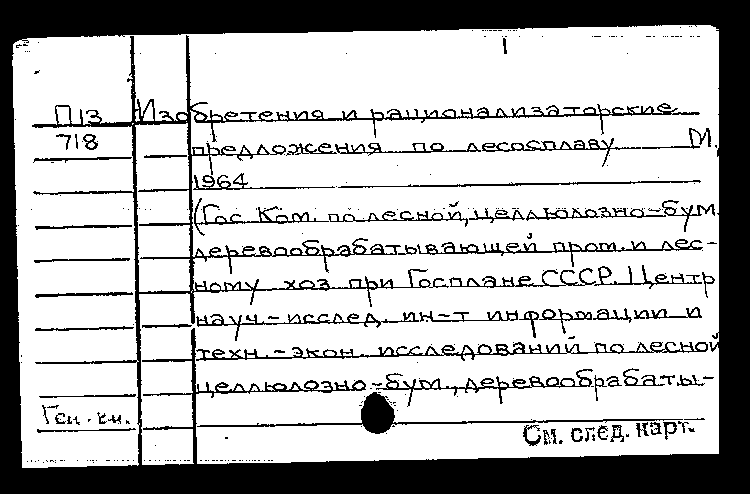 1
П13 Изобретения и рационализаторские
718 предложения по лесосплаву М,
1964
(Гос Ком. по лесной, целлюлозно-бум.
деревообрабатывающей пром. и лес-
ному хоз при Госплане СССР. Центр
науч.-исслед. ин-т информации и
техн.-экон. исследований по лесной
целлюлозно-бум., деревообрабаты-
Ген.
См. след. карт.